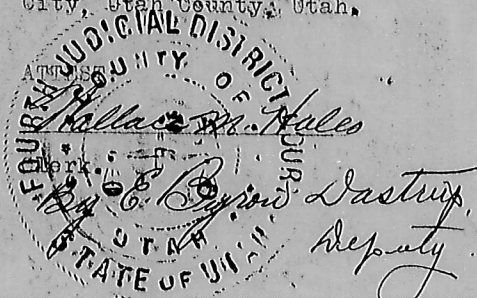 City, Utah County, Utah.
ATTEST
Wallace M. Hales
Clerk.
By E. Byron Dastrup,
Deputy.
FOURTH JUDICIAL DISTRICT COURT
COUNTY OF
UTAH
STATE OF UTAH